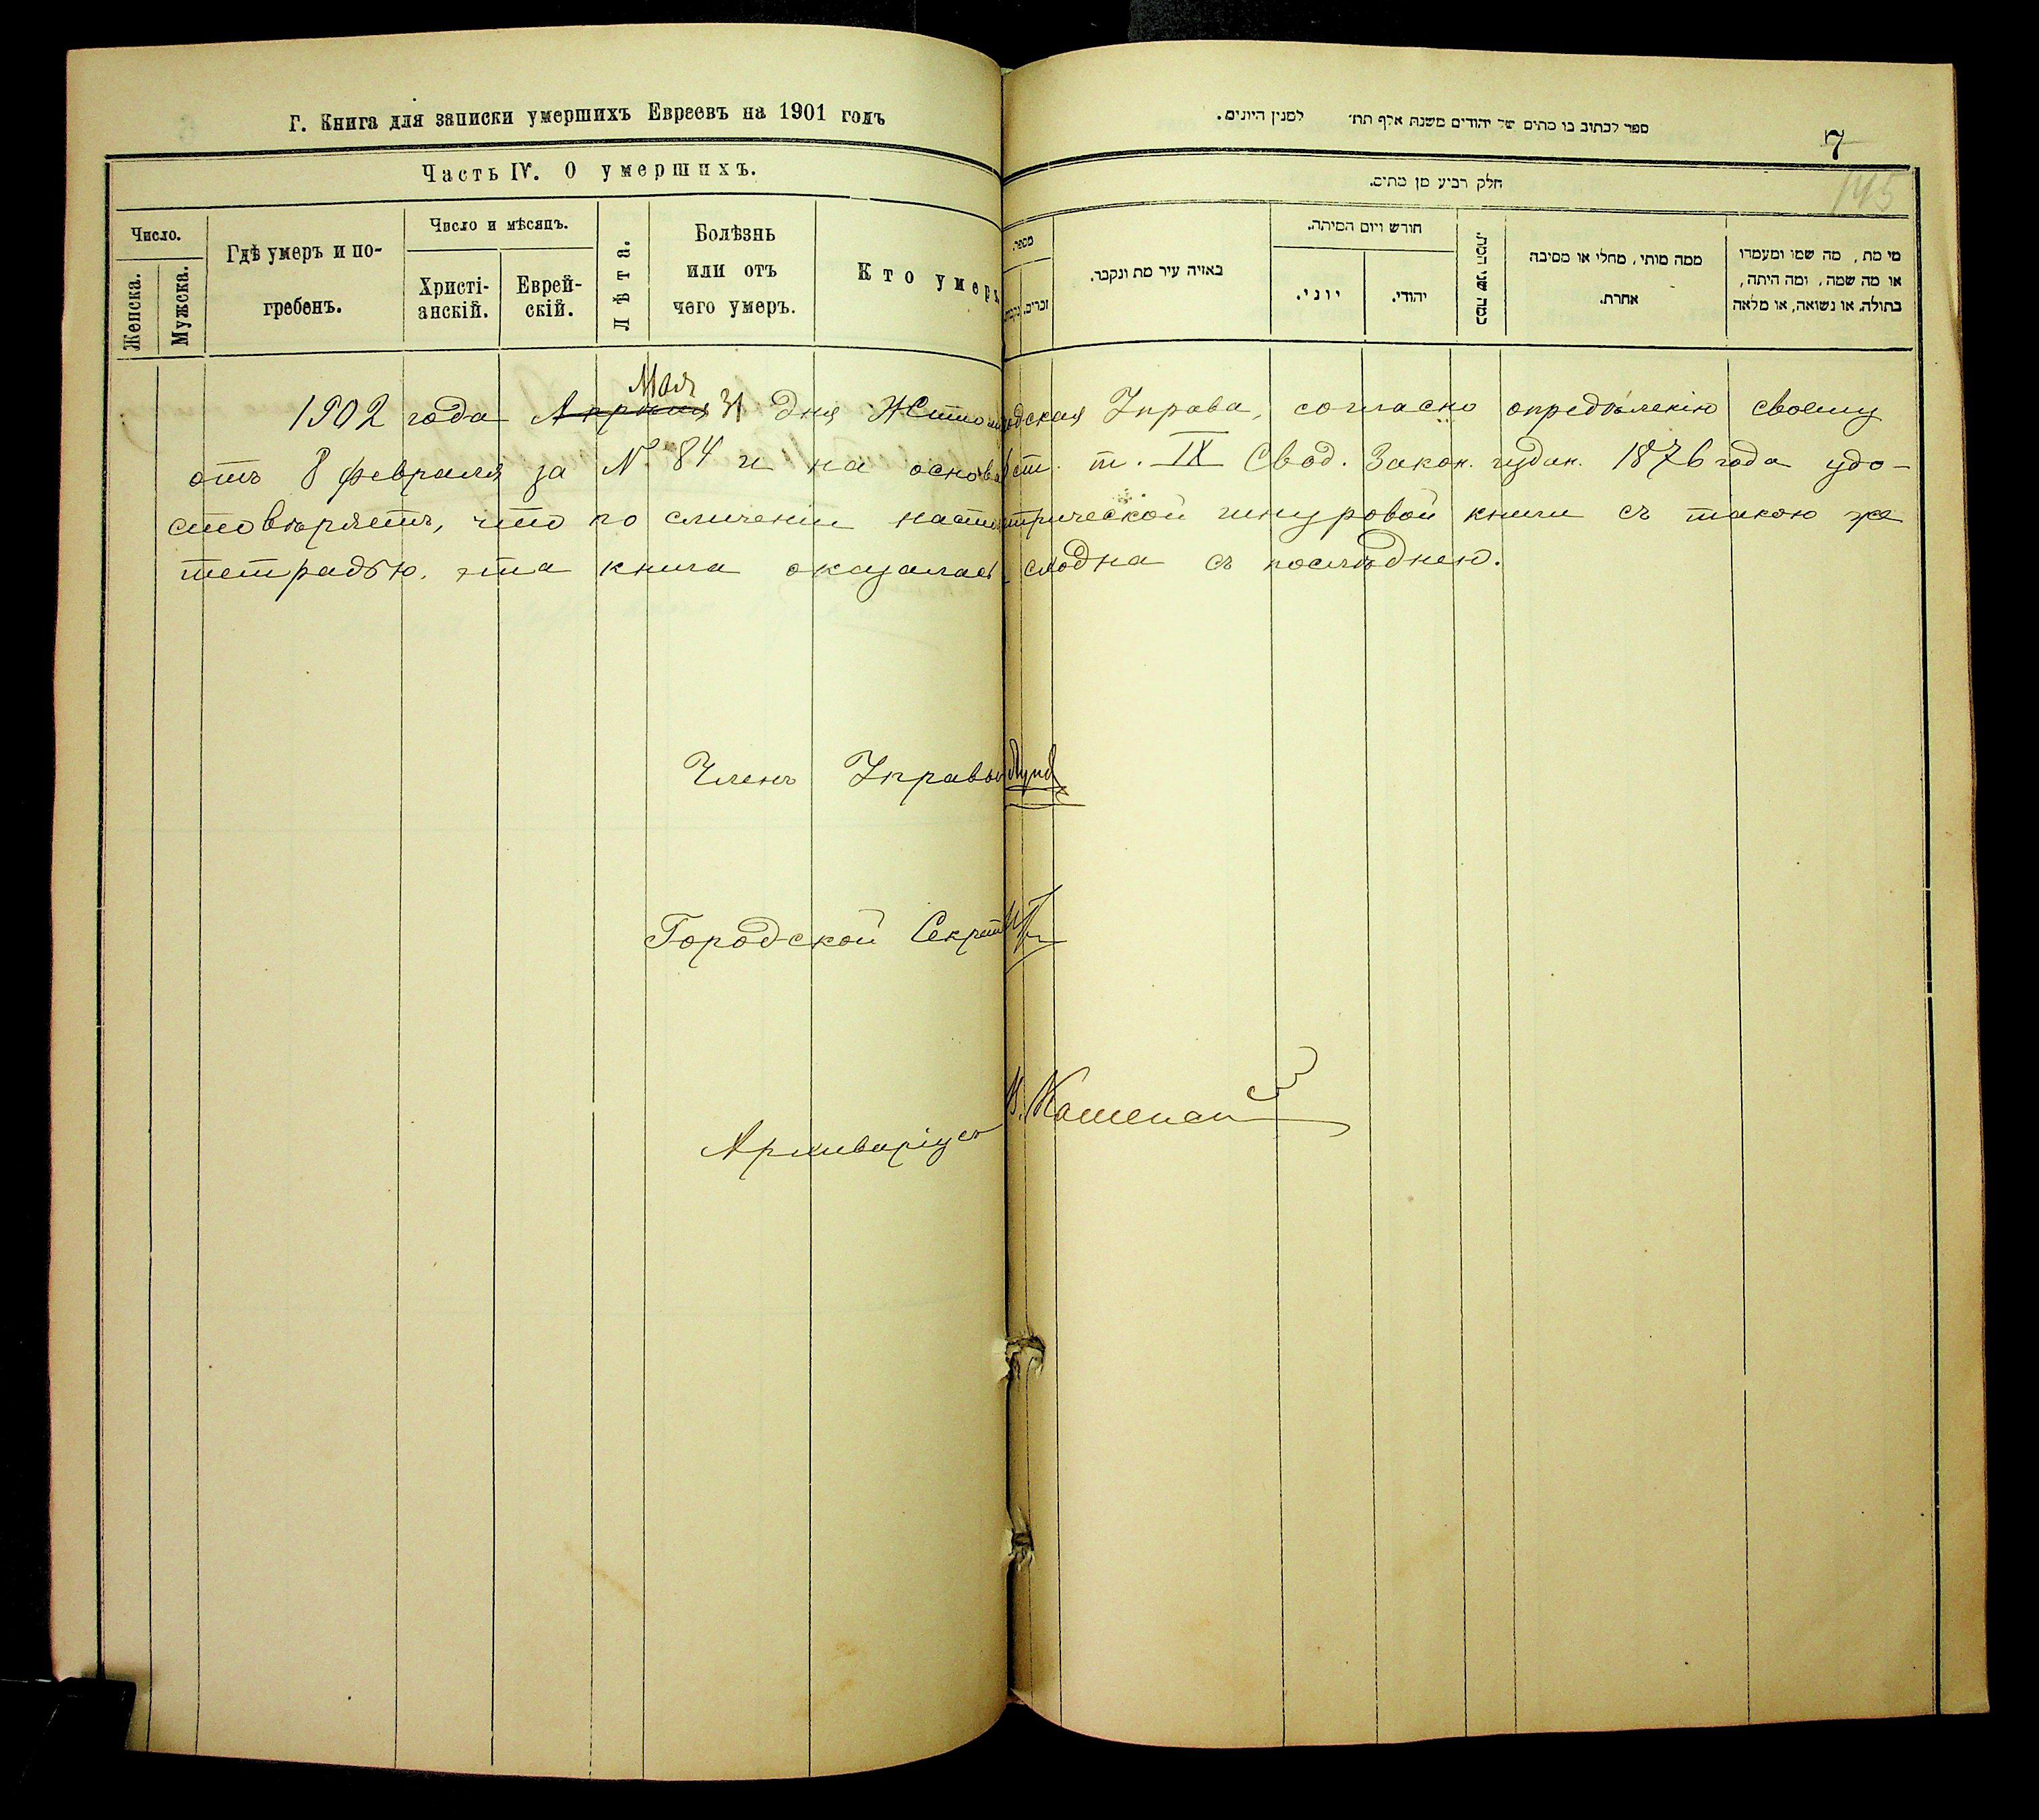 Г. Книга для записки умершихъ Евреевъ на 1901 годъ
Часть IV. О умершихъ.
Число.
Женска.
Мужска.
Гдѣ умеръ и по-
гребенъ.
Число и мѣсяцъ.
Христі-
анскій.
Еврей-
скій.
Лѣта.
Болѣзнь
или отъ
чего умеръ.
Кто умеръ
ספר לכתוב בו מתים של יהודים משנת אלף תת׳ למנין היונים.
7
145
חלק רביע מן מתים.
מספר.
זכרים.
באיזה עיר מת ונקבר.
חודש ויום המיתה.
יוני.
יהודי.
כמה שני המת.
ממה מותי, מחלי או מסיבה
אחרת.
מי מת, מה שמו ומעמדו
או מה שמה, ומה היתה,
בתולה, או נשואה, או מלאה
Мая
1902 года Апрѣля 31 дня Житом одская Управа, согласно опредѣленію своему
отъ 8 февраля за № 84 и на основа ст. т. IX Свод. Закон. издан. 1876 года удо-
стовѣряетъ, что по сличеніи насто трической шнуровой книги съ такою же
тетрадью, эта книга оказалась сходна съ послѣднею.
Членъ Управы
Городской Секрет
Архиваріусъ